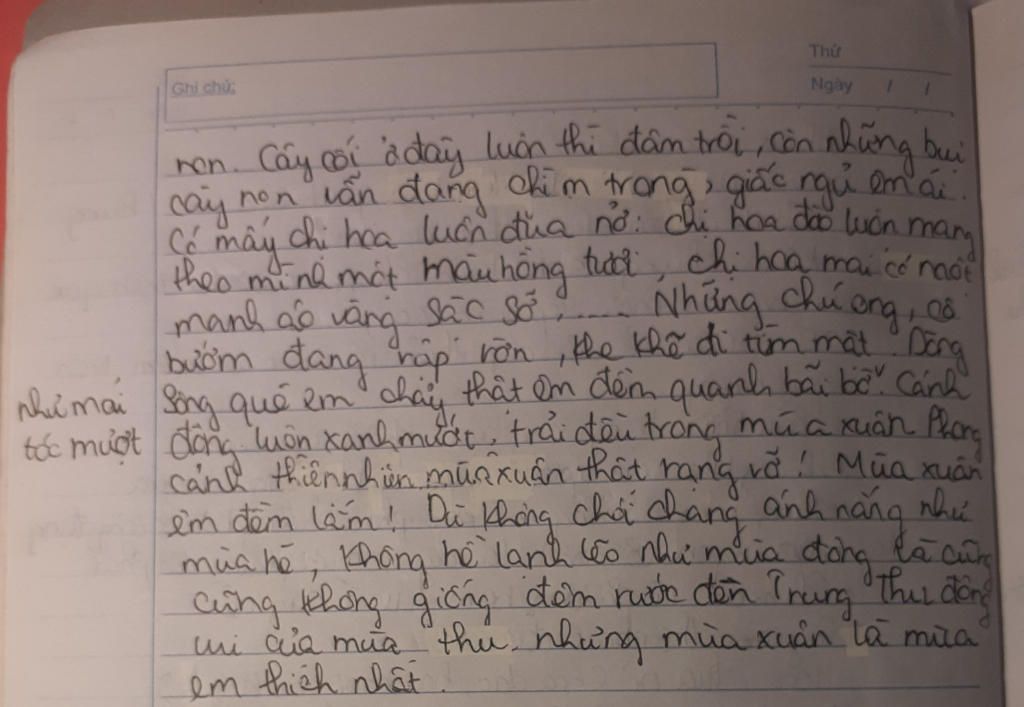 Thứ
Ghi chú:
Ngày / /
non. Cây cối ở đây luôn thì đâm trồi, còn những bụi
cây non vẫn đang chìm trong, giấc ngủ êm ái.
Có mấy chị hoa luôn đua nở: chị hoa đào luôn mang
theo mình một màu hồng tươi, chị hoa mai có một
manh áo vàng sặc sỡ, ..... Những chú ong, cô
bướm đang rập rờn, khe khẽ đi tìm mật. Dòng
sông quê em chảy thật êm đềm quanh bãi bờ v. Cánh
như mai
tóc mượt
đồng luôn xanh mướt, trải đều trong mùa xuân Phong
cảnh thiên nhiên mùa xuân thật rạng rỡ! Mùa xuân
êm đềm lắm! Dù không chói chang ánh nắng như
mùa hè, không hề lạnh lẽo như mùa đông là cũng
cũng không giống đêm rước đèn Trung Thu đông
vui của mùa thu. nhưng mùa xuân là mùa
em thích nhất.